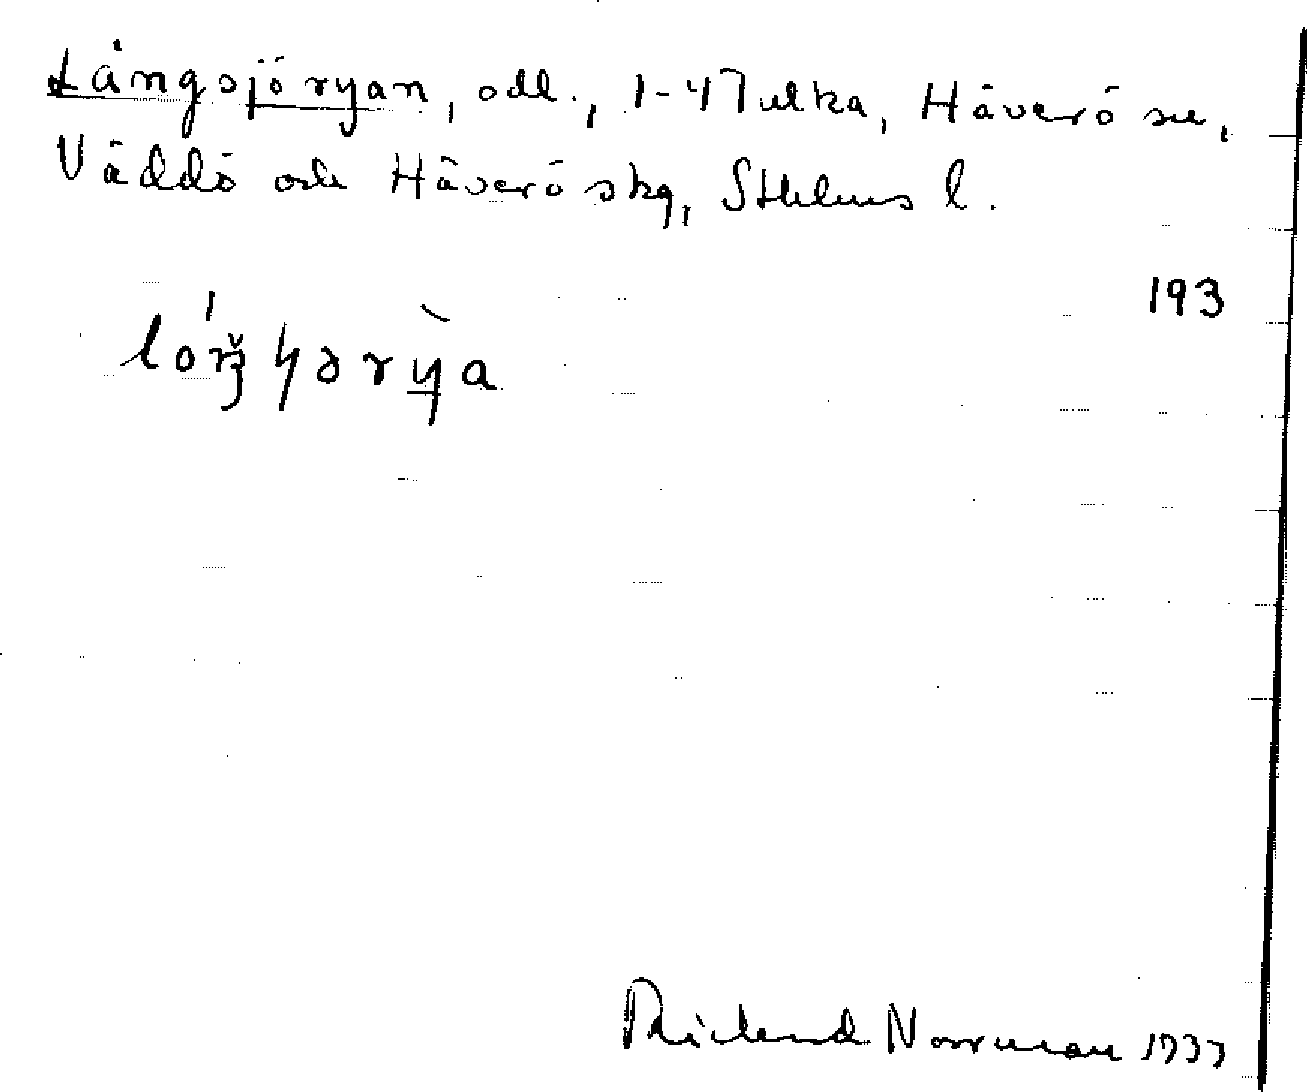 Långsjöryan, odl., 1-47 ulka, Häverö sn,
Väddö och Häverö skg, Sthlms l.
193
Rickard Norrman 1933